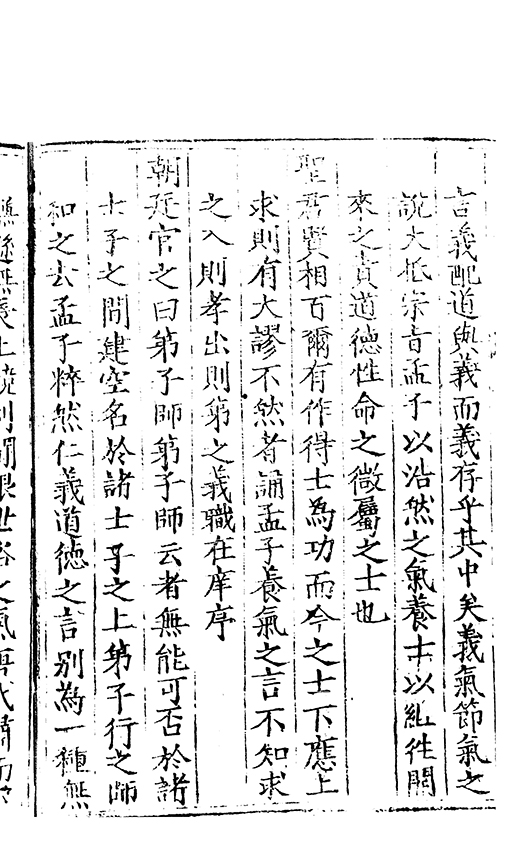 言義配道與義而義存乎其中矣義氣節氣之
說大抵宗音孟子以浩然之氣養士以繼徃開
來之責道德性命之微屬之士也
聖君賢相百爾有作得士為功而今之士下應上
求則有大謬不然者誦孟子養氣之言不知求
之入則孝出則弟之義職在庠序
朝廷官之曰弟子師弟子師云者無能可否於諸
士子之間建空名於諸士子之上弟子行之師
和之去孟子粹然仁義道德之言別為一種無